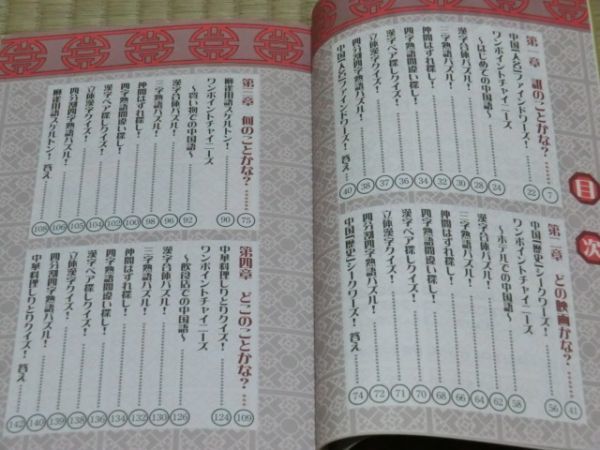 目次
第一章 誰のことかな？ …… 7
中国【人名】ファインドワーズ！ …… 22
ワンポイントチャイニーズ
〜はじめての中国語〜 …… 24
漢字合体パズル！ …… 28
三字熟語パズル！ …… 30
仲間はずれ探し！ …… 32
四字熟語間違い探し！ …… 34
漢字ペア探しクイズ！ …… 36
立体漢字クイズ！ …… 37
四分割四字熟語パズル！ …… 38
中国【人名】ファインドワーズ！ 答え …… 40
第二章 どの映画かな？ …… 41
中国【歴史】シークワーズ！ …… 56
ワンポイントチャイニーズ
〜ホテルでの中国語〜 …… 58
漢字合体パズル！ …… 62
三字熟語パズル！ …… 64
仲間はずれ探し！ …… 66
四字熟語間違い探し！ …… 68
漢字ペア探しクイズ！ …… 70
立体漢字クイズ！ …… 71
四分割四字熟語パズル！ …… 72
中国【歴史】シークワーズ！ 答え …… 74
第三章 何のことかな？ …… 75
麻雀用語スケルトン！ …… 90
ワンポイントチャイニーズ
〜買い物での中国語〜 …… 92
漢字合体パズル！ …… 96
三字熟語パズル！ …… 98
仲間はずれ探し！ …… 100
四字熟語間違い探し！ …… 102
漢字ペア探しクイズ！ …… 104
立体漢字クイズ！ …… 105
四分割四字熟語パズル！ …… 106
麻雀用語スケルトン！ 答え …… 108
第四章 どこのことかな？ …… 109
中華料理しりとりクイズ！ …… 124
ワンポイントチャイニーズ
〜飲食店での中国語〜 …… 126
漢字合体パズル！ …… 130
三字熟語パズル！ …… 132
仲間はずれ探し！ …… 134
四字熟語間違い探し！ …… 136
漢字ペア探しクイズ！ …… 138
立体漢字クイズ！ …… 139
四分割四字熟語パズル！ …… 140
中華料理しりとりクイズ！ 答え …… 142